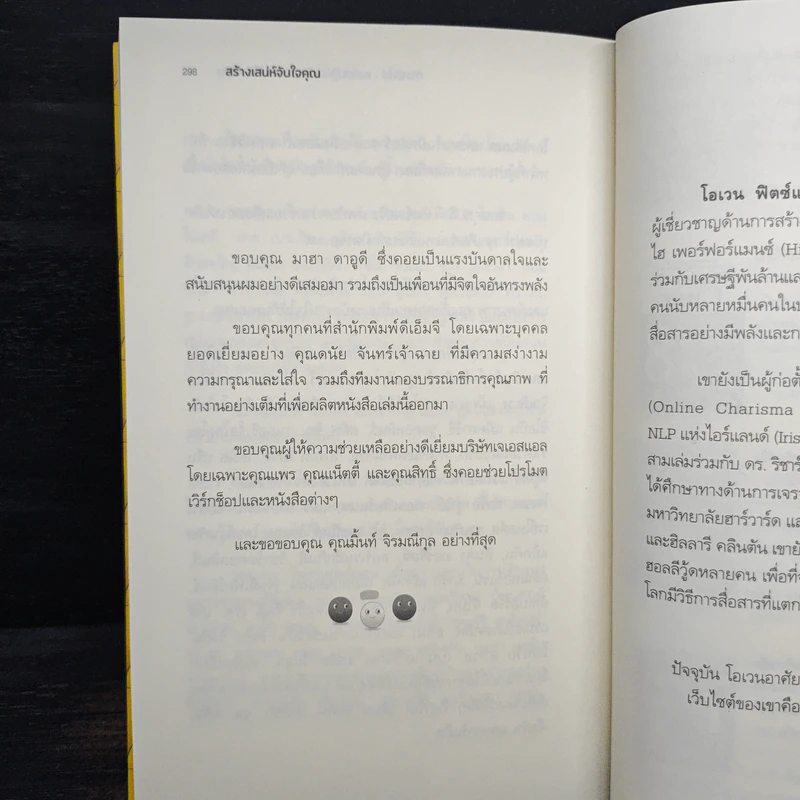 298 สร้างเสน่ห์จับใจคุณ
ขอบคุณ มาฮา ดาอูดี ซึ่งคอยเป็นแรงบันดาลใจและ
สนับสนุนผมอย่างดีเสมอมา รวมถึงเป็นเพื่อนที่มีจิตใจอันทรงพลัง
ขอบคุณทุกคนที่สำนักพิมพ์ดีเอ็มจี โดยเฉพาะบุคคล
ยอดเยี่ยมอย่าง คุณดนัย จันทร์เจ้าฉาย ที่มีความสง่างาม
ความกรุณาและใส่ใจ รวมถึงทีมงานกองบรรณาธิการคุณภาพ ที่
ทำงานอย่างเต็มที่เพื่อผลิตหนังสือเล่มนี้ออกมา
ขอบคุณผู้ให้ความช่วยเหลืออย่างดีเยี่ยมบริษัทเจเอสแอล
โดยเฉพาะคุณแพร คุณแน็ตตี้ และคุณสิทธิ์ ซึ่งคอยช่วยโปรโมต
เวิร์กช็อปและหนังสือต่างๆ
และขอขอบคุณ คุณมิ้นท์ จิรมณีกุล อย่างที่สุด
โอเวน ฟิตซ์แ
ผู้เชี่ยวชาญด้านการสร้า
ไฮ เพอร์ฟอร์แมนซ์ (Hi
ร่วมกับเศรษฐีพันล้านแล
คนนับหลายหมื่นคนในป
สื่อสารอย่างมีพลังและก
เขายังเป็นผู้ก่อตั้
(Online Charisma
NLP แห่งไอร์แลนด์ (Iris
สามเล่มร่วมกับ ดร. ริชาร์
ได้ศึกษาทางด้านการเจรา
มหาวิทยาลัยฮาร์วาร์ด แล
และฮิลลารี คลินตัน เขายั
ฮอลลีวู้ดหลายคน เพื่อที่จ
โลกมีวิธีการสื่อสารที่แตก
ปัจจุบัน โอเวนอาศัย
เว็บไซต์ของเขาคือ